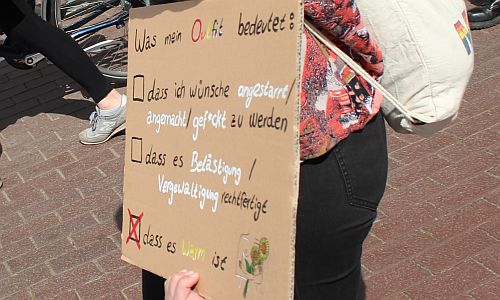 Was mein Outfit bedeutet:
dass ich wünsche angestarrt/
angemacht/gef*ckt zu werden
dass es Belästigung/
Vergewaltigung rechtfertigt
dass es warm ist